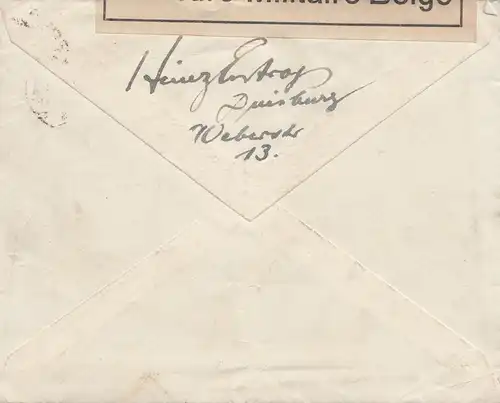 Militaire Belge
Heinz
Duisburg
Weberstr
13.